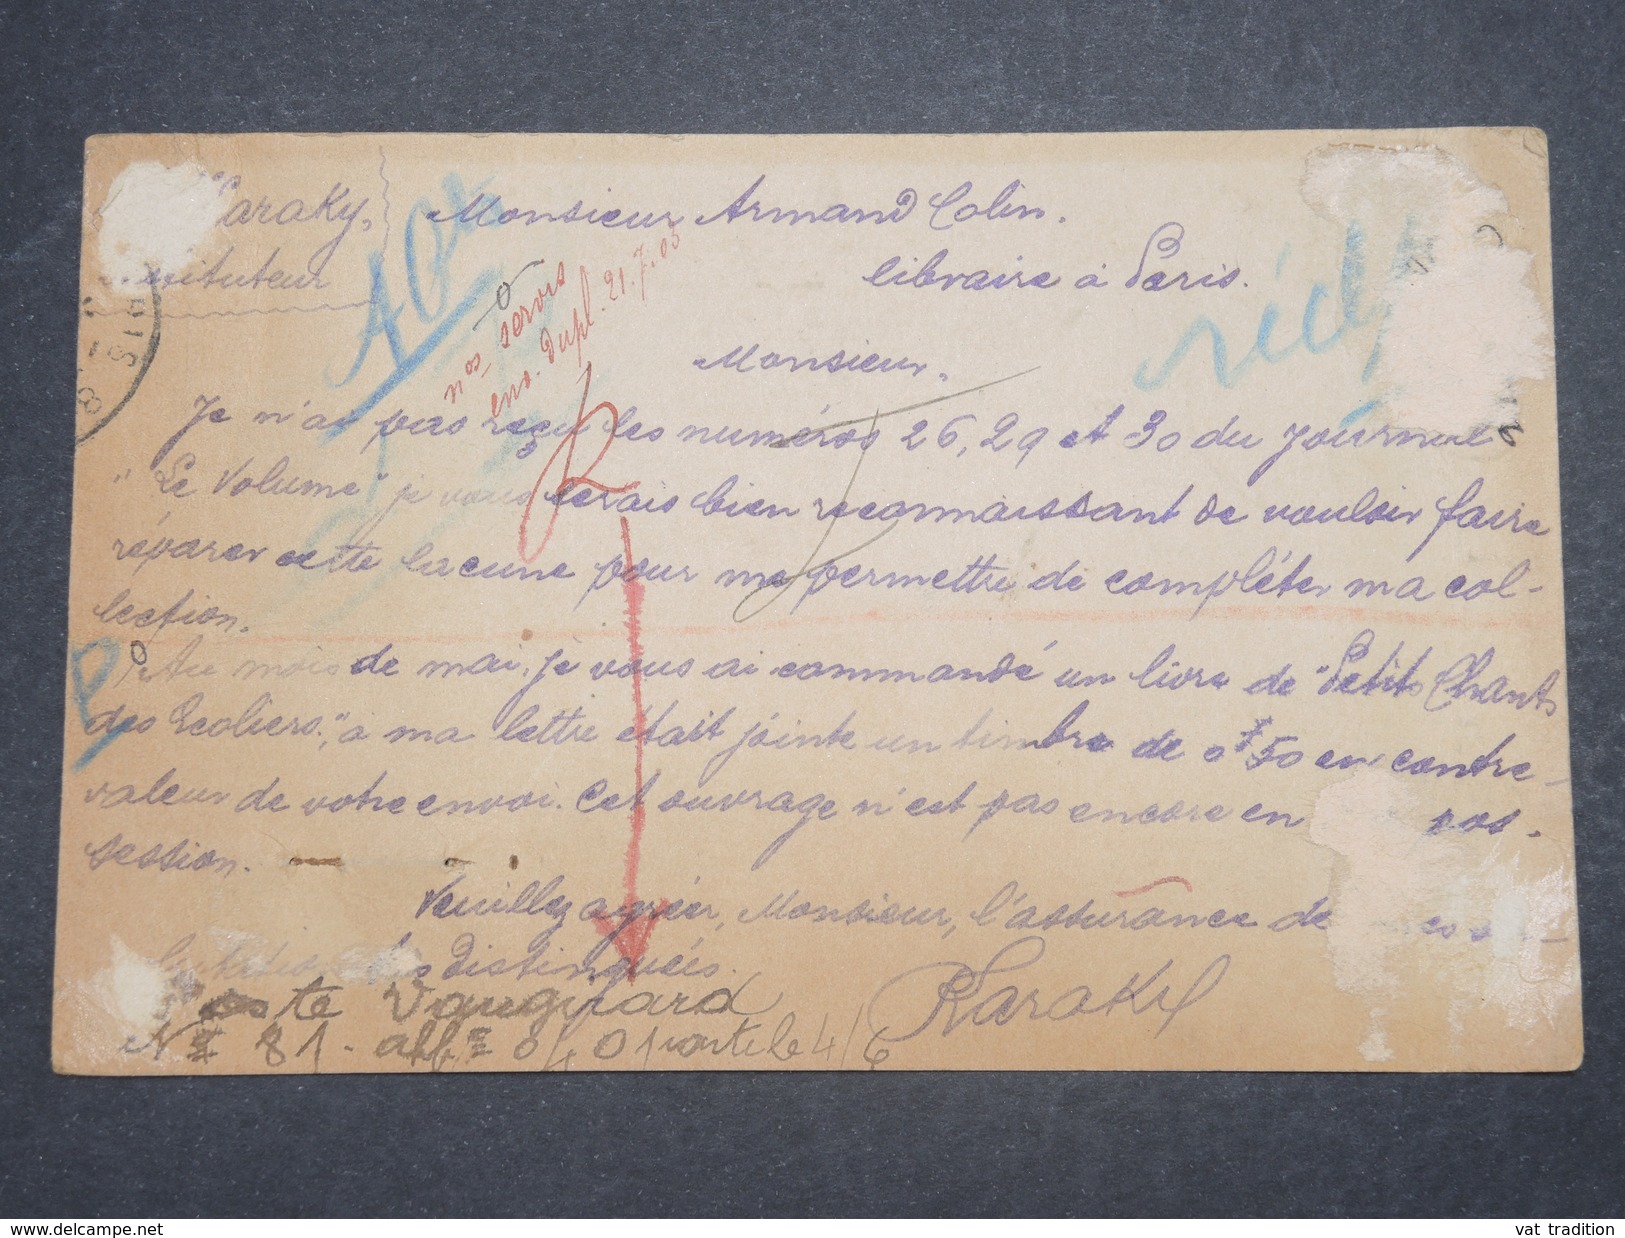 Karaky,
Monsieur Armand Colin.
instituteur
libraire à Paris.
récl
nos servis
env. dupl. 21.7.05
Monsieur,
Je n'ai pas reçu les numéros 26, 29 et 30 du journal
"Le Volume" je vous serais bien reconnaissant de vouloir faire
réparer cette lacune pour me permettre de compléter ma col-
lection.
Au mois de mai, je vous ai commandé un livre de "Petits Chants
des Ecoliers", à ma lettre était joint un timbre de 0f50 en contre-
valeur de votre envoi. Cet ouvrage n'est pas encore en pos-
session.
Veuillez agréer, Monsieur, l'assurance de
distingués.
Karaky
Vaugirard
81
vat tradition
www.delcampe.net